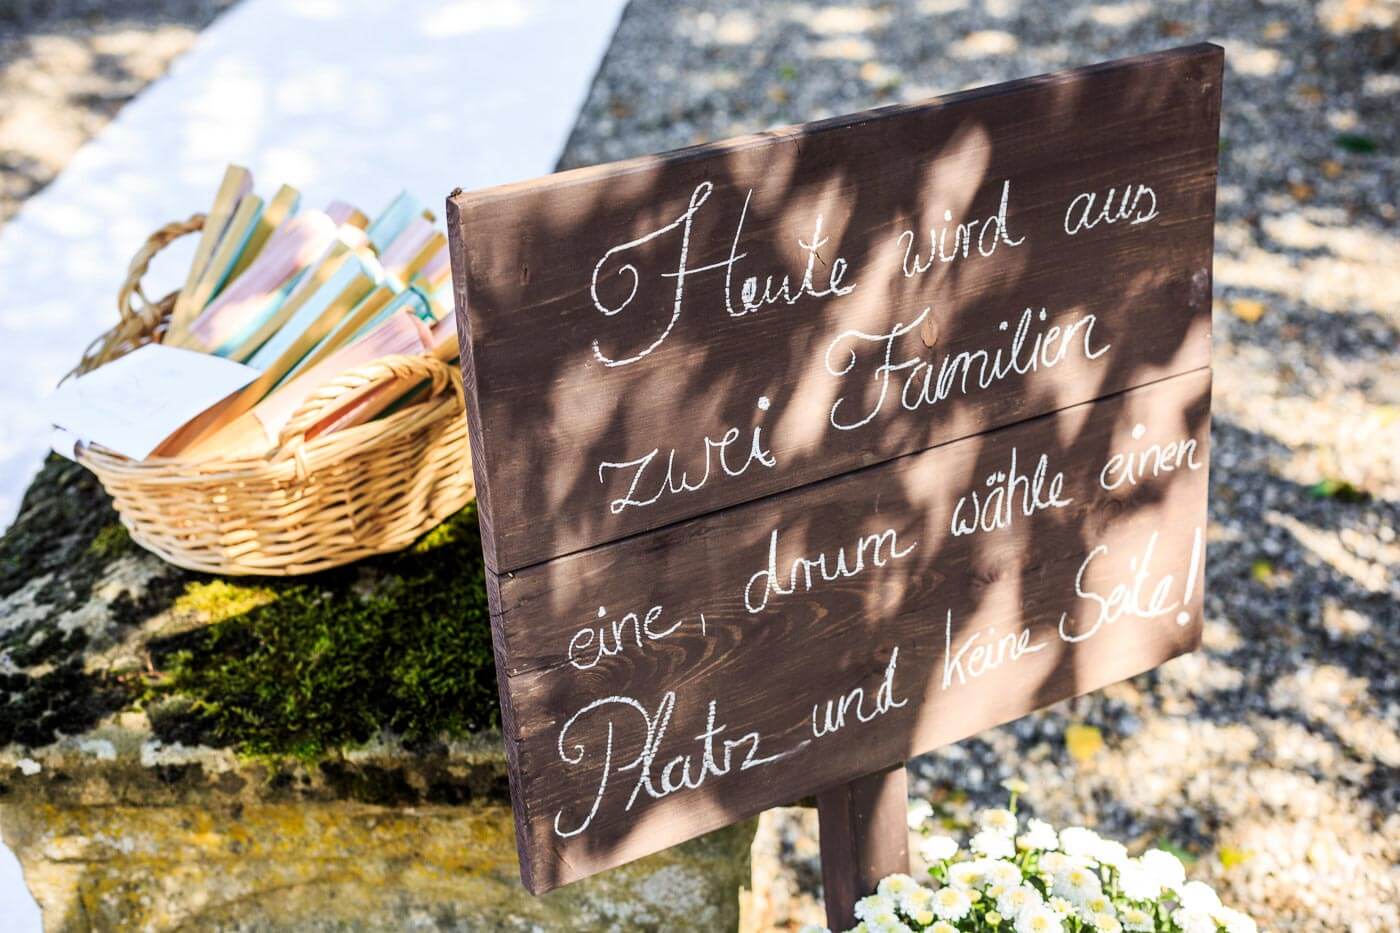 Heute wird aus
zwei Familien
eine, drum wähle einen
Platz und keine Seite!